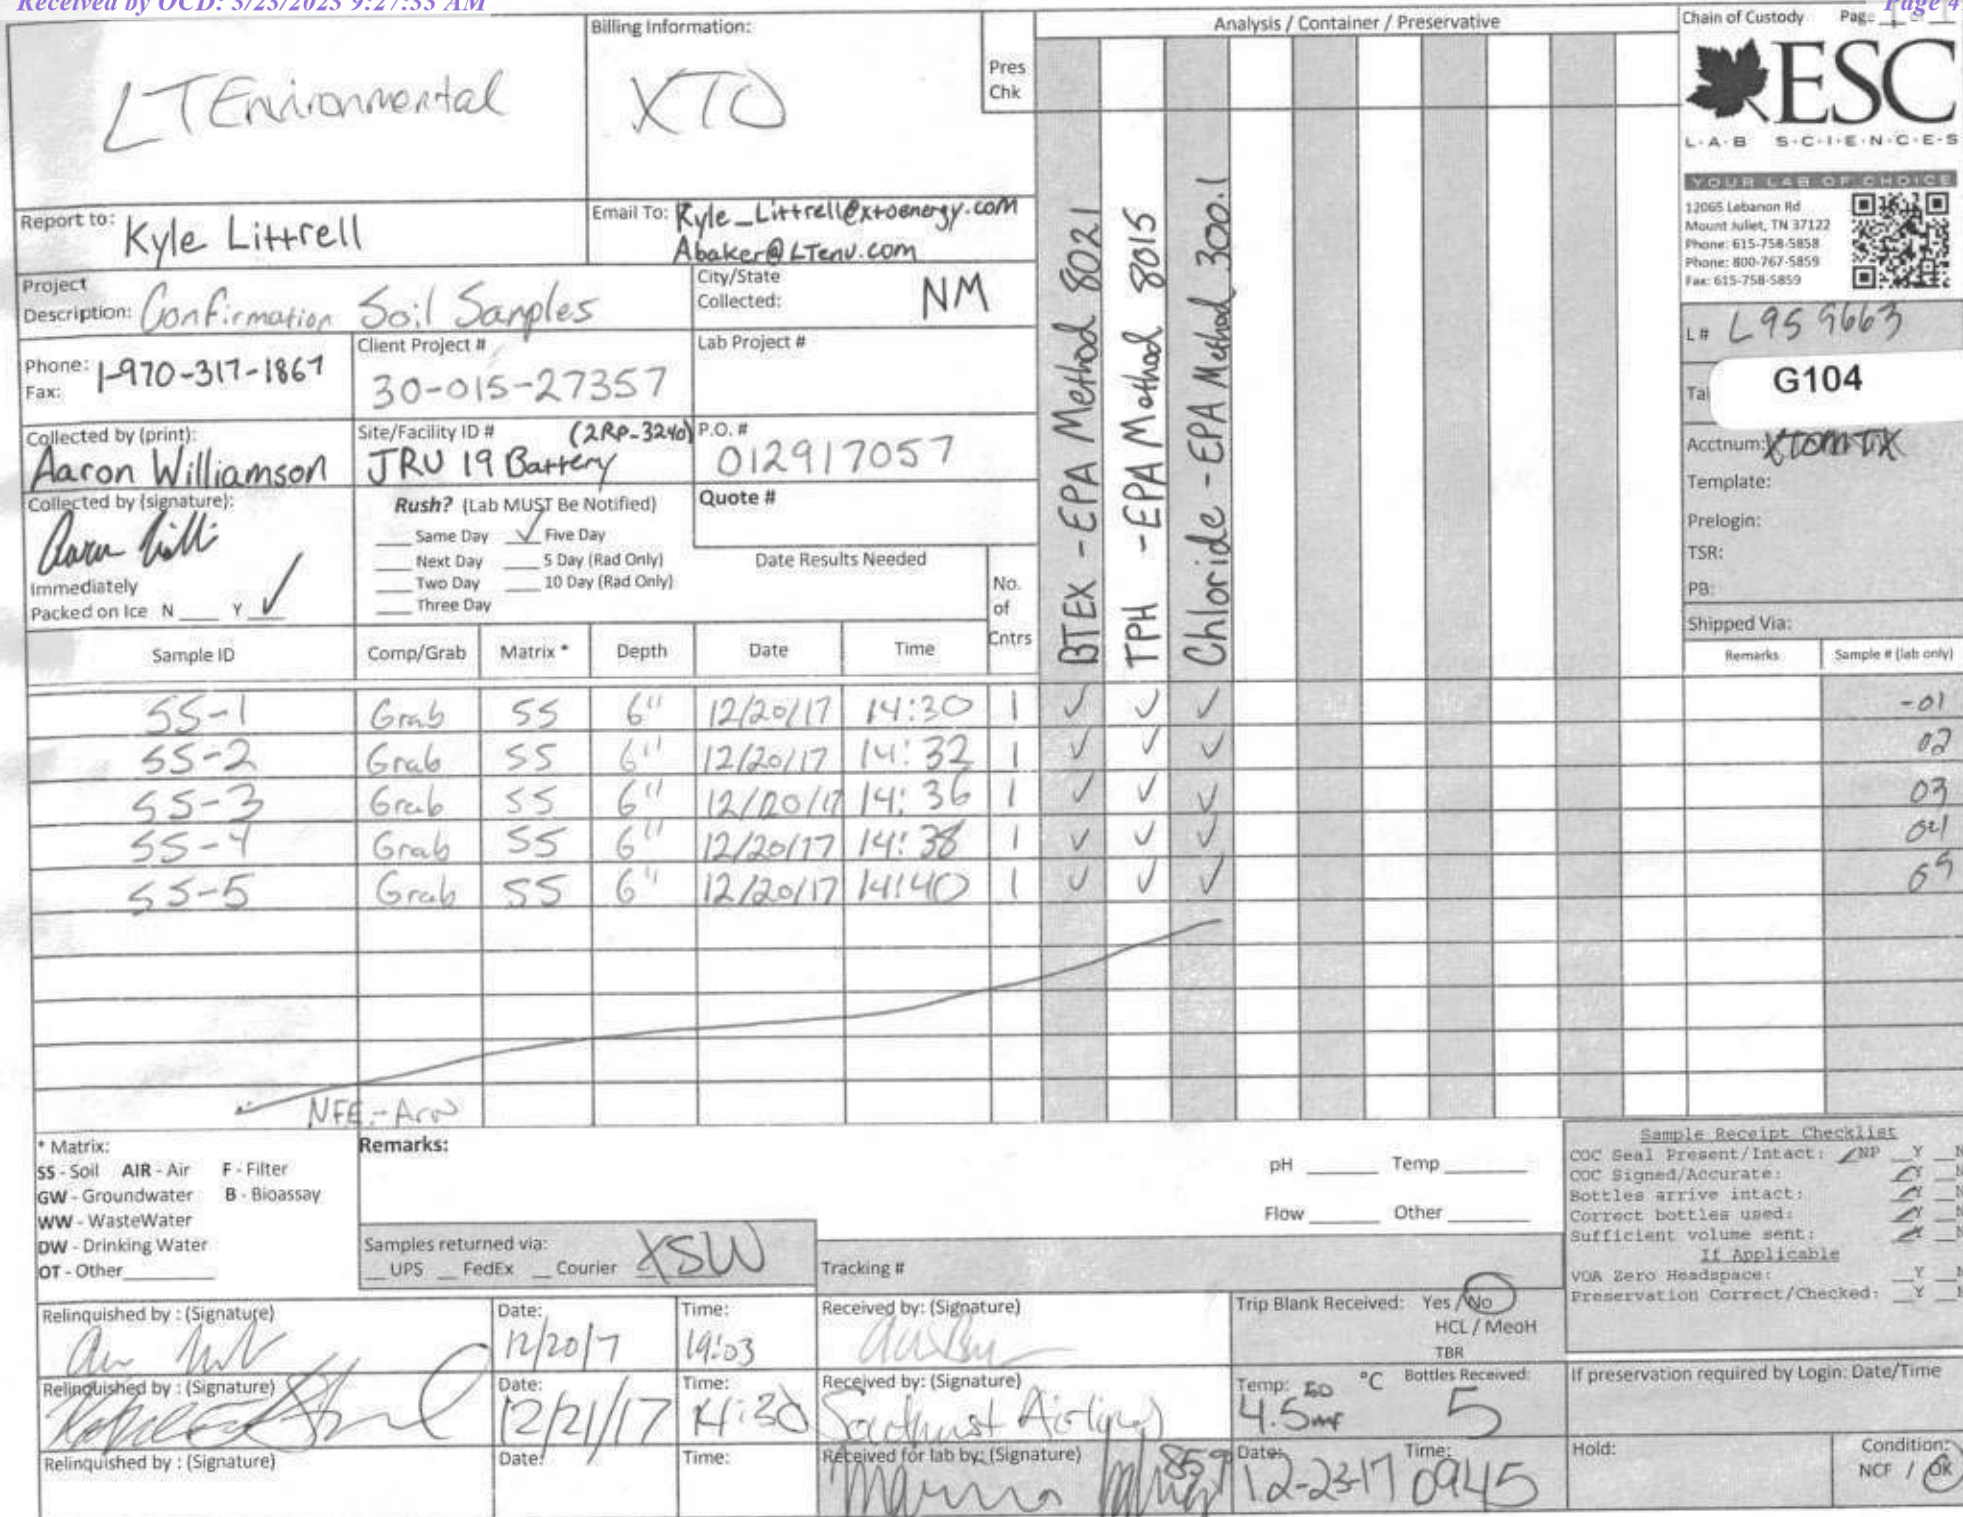 Received by OCD: 3/23/2023 9:27:33 AM
Page 4
LT Environmental
Billing Information:
XTO
Pres
Chk
Analysis / Container / Preservative
Chain of Custody Page
ESC
L·A·B S·C·I·E·N·C·E·S
YOUR LAB OF CHOICE
12065 Lebanon Rd
Mount Juliet, TN 37122
Phone: 615-758-5858
Phone: 800-767-5859
Fax: 615-758-5859
Report to: Kyle Littrell
Email To: Kyle_Littrell@xtoenergy.com
Abaker@LTenv.com
Project
Description: Confirmation Soil Samples
City/State
Collected: NM
Phone: 1-970-317-1867
Fax:
Client Project #
30-015-27357
Lab Project #
Collected by (print):
Aaron Williamson
Site/Facility ID # (2RP-3240)
JRU 19 Battery
P.O. #
012917057
Collected by (signature):
Immediately
Packed on Ice N ___ Y ✓
Rush? (Lab MUST Be Notified)
___ Same Day ✓ Five Day
___ Next Day ___ 5 Day (Rad Only)
___ Two Day ___ 10 Day (Rad Only)
___ Three Day
Quote #
Date Results Needed
No.
of
Cntrs
BTEX - EPA Method 8021
TPH - EPA Method 8015
Chloride - EPA Method 300.1
L # L959663
G104
Acctnum: XTOMTX
Template:
Prelogin:
TSR:
PB:
Shipped Via:
Sample ID Comp/Grab Matrix * Depth Date Time Remarks Sample # (lab only)
SS-1 Grab SS 6" 12/20/17 14:30 1 ✓ ✓ ✓ -01
SS-2 Grab SS 6" 12/20/17 14:32 1 ✓ ✓ ✓ 02
SS-3 Grab SS 6" 12/20/17 14:36 1 ✓ ✓ ✓ 03
SS-4 Grab SS 6" 12/20/17 14:38 1 ✓ ✓ ✓ 04
SS-5 Grab SS 6" 12/20/17 14:40 1 ✓ ✓ ✓ 05
NFE.-
* Matrix:
SS - Soil AIR - Air F - Filter
GW - Groundwater B - Bioassay
WW - WasteWater
DW - Drinking Water
OT - Other
Remarks:
pH ___ Temp ___
Flow ___ Other ___
Samples returned via:
__ UPS __ FedEx __ Courier XSW
Tracking #
Sample Receipt Checklist
COC Seal Present/Intact: ✓NP _Y _N
COC Signed/Accurate: ✓Y _N
Bottles arrive intact: ✓Y _N
Correct bottles used: ✓Y _N
Sufficient volume sent: ✓Y _N
If Applicable
VOA Zero Headspace: _Y _N
Preservation Correct/Checked: _Y _N
Relinquished by : (Signature)
Date: 12/20/7
Time: 19:03
Received by: (Signature)
Trip Blank Received: Yes / No
HCL / MeoH
TBR
Relinquished by : (Signature)
Date: 12/21/17
Time:
Received by: (Signature)
Southwest Airlines
Temp: °C
4.5
Bottles Received:
5
If preservation required by Login: Date/Time
Relinquished by : (Signature)
Date:
Time:
Received for lab by: (Signature)
859
Date: 12-23-17
Time: 0945
Hold:
Condition:
NCF / OK